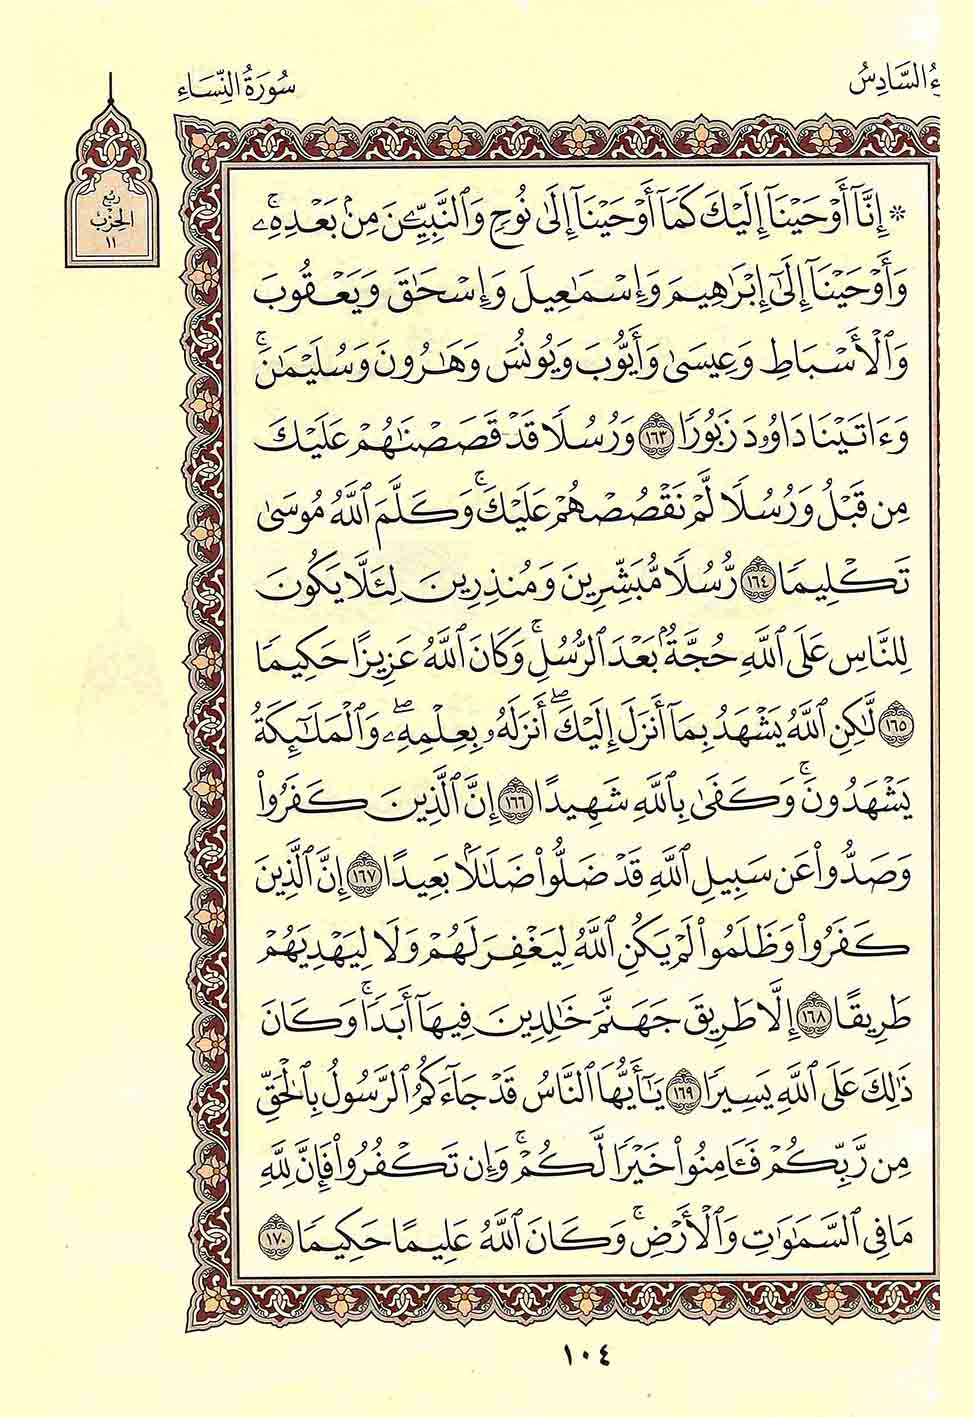 ءُ السَّادِسُ
سُورَةُ النِّسَاءِ
رُبُع
الحِزْب
١١
* إِنَّآ أَوْحَيْنَآ إِلَيْكَ كَمَآ أَوْحَيْنَآ إِلَىٰ نُوحٍ وَٱلنَّبِيِّـۧنَ مِنۢ بَعْدِهِۦۚ
وَأَوْحَيْنَآ إِلَىٰٓ إِبْرَٰهِيمَ وَإِسْمَٰعِيلَ وَإِسْحَٰقَ وَيَعْقُوبَ
وَٱلْأَسْبَاطِ وَعِيسَىٰ وَأَيُّوبَ وَيُونُسَ وَهَٰرُونَ وَسُلَيْمَٰنَۚ
وَءَاتَيْنَا دَاوُۥدَ زَبُورًا ١٦٣ وَرُسُلًا قَدْ قَصَصْنَٰهُمْ عَلَيْكَ
مِن قَبْلُ وَرُسُلًا لَّمْ نَقْصُصْهُمْ عَلَيْكَۚ وَكَلَّمَ ٱللَّهُ مُوسَىٰ
تَكْلِيمًا ١٦٤ رُّسُلًا مُّبَشِّرِينَ وَمُنذِرِينَ لِئَلَّا يَكُونَ
لِلنَّاسِ عَلَى ٱللَّهِ حُجَّةٌۢ بَعْدَ ٱلرُّسُلِۚ وَكَانَ ٱللَّهُ عَزِيزًا حَكِيمًا
١٦٥ لَّٰكِنِ ٱللَّهُ يَشْهَدُ بِمَآ أَنزَلَ إِلَيْكَۖ أَنزَلَهُۥ بِعِلْمِهِۦۖ وَٱلْمَلَٰٓئِكَةُ
يَشْهَدُونَۚ وَكَفَىٰ بِٱللَّهِ شَهِيدًا ١٦٦ إِنَّ ٱلَّذِينَ كَفَرُوا۟
وَصَدُّوا۟ عَن سَبِيلِ ٱللَّهِ قَدْ ضَلُّوا۟ ضَلَٰلًۢا بَعِيدًا ١٦٧ إِنَّ ٱلَّذِينَ
كَفَرُوا۟ وَظَلَمُوا۟ لَمْ يَكُنِ ٱللَّهُ لِيَغْفِرَ لَهُمْ وَلَا لِيَهْدِيَهُمْ
طَرِيقًا ١٦٨ إِلَّا طَرِيقَ جَهَنَّمَ خَٰلِدِينَ فِيهَآ أَبَدًاۚ وَكَانَ
ذَٰلِكَ عَلَى ٱللَّهِ يَسِيرًا ١٦٩ يَٰٓأَيُّهَا ٱلنَّاسُ قَدْ جَآءَكُمُ ٱلرَّسُولُ بِٱلْحَقِّ
مِن رَّبِّكُمْ فَـَٔامِنُوا۟ خَيْرًا لَّكُمْۚ وَإِن تَكْفُرُوا۟ فَإِنَّ لِلَّهِ
مَا فِى ٱلسَّمَٰوَٰتِ وَٱلْأَرْضِۚ وَكَانَ ٱللَّهُ عَلِيمًا حَكِيمًا ١٧٠
١٠٤